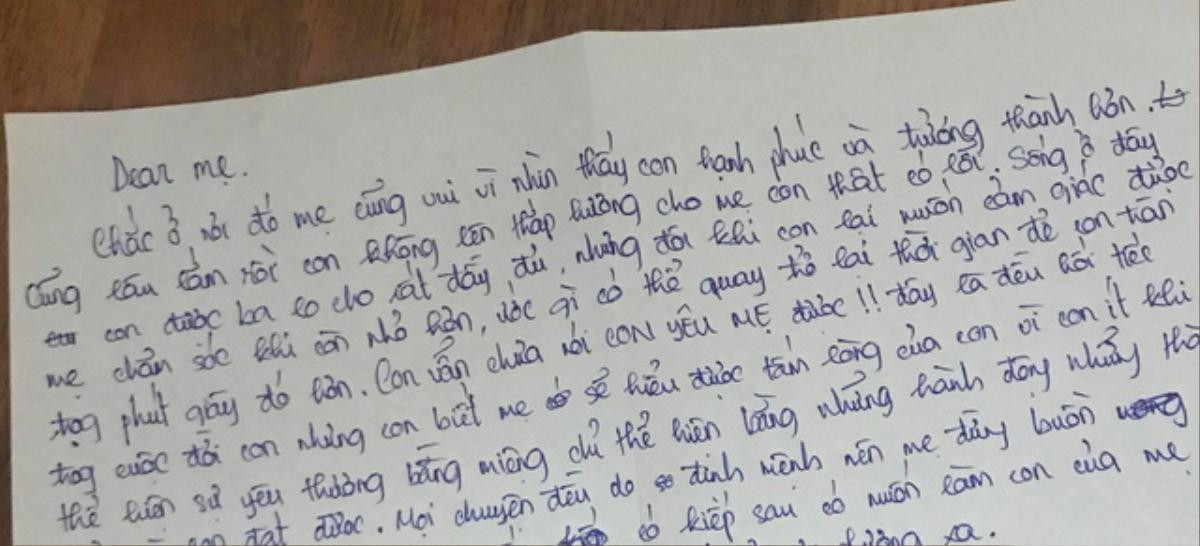 Dear mẹ.
Chắc ở nơi đó mẹ cũng vui vì nhìn thấy con hạnh phúc và tưởng thành hơn.
Cũng lâu lắm rồi con không lên thắp hương cho mẹ con thật có lỗi. Sống ở đây
con được ba lo cho rất đầy đủ, nhưng đôi khi con lại muốn cảm giác được
mẹ chăm sóc khi còn nhỏ hơn, ước gì có thể quay trở lại thời gian để con trân
trọg phút giây đó hơn. Con vẫn chưa nói CON YÊU MẸ được!! đây là điều hối tiếc
trog cuộc đời con nhưng con biết mẹ sẽ hiểu được tấm lòng của con vì con ít khi
thể hiện sự yêu thương bằng miệng chỉ thể hiện bằng những hành động nhưng
đạt được. Mọi chuyện đều do định mệnh nên mẹ đừng buồn
có kiếp sau có muốn làm con của mẹ
xa.